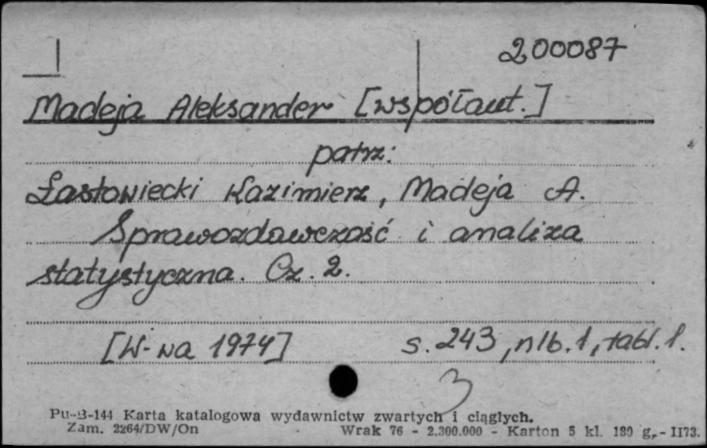 200087
Madeja Aleksander [współaut.]
patrz:
Łastowiecki Kazimierz, Madeja A.
Sprawozdawczość i analiza
statystyczna. Cz. 2.
[W-wa 1974] s. 243, nlb. 1, tabl. 1.
3
Pu-B-144 Karta katalogowa wydawnictw zwartych i ciągłych.
Zam. 2264/DW/On Wrak 76 - 2.300.000 - Karton 5 kl. 180 g. - II73.